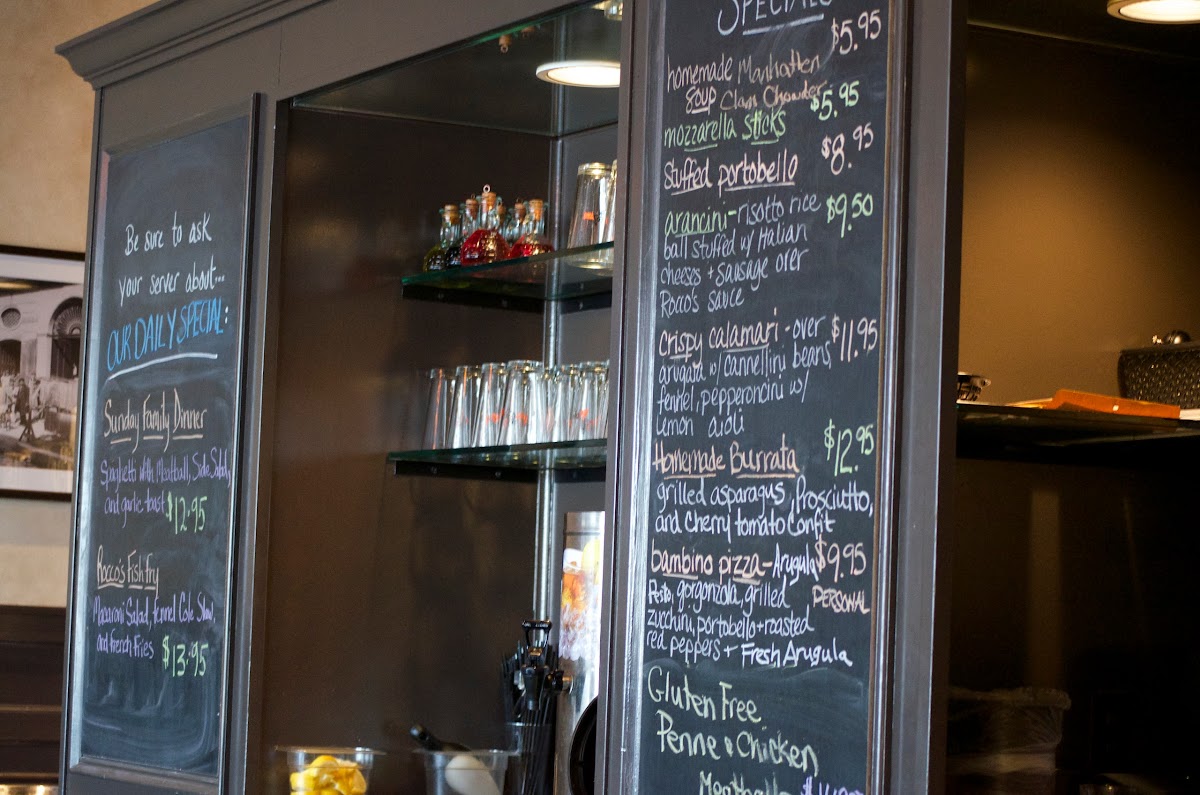 Be sure to ask
your server about...
OUR DAILY SPECIAL:
Sunday Family Dinner
Spaghetti with Meatball, Side Salad,
and garlic toast $12.95
Rocco's Fish fry
Macaroni Salad, fennel Cole Slaw,
and french fries $13.95
SPECIALS
$5.95
homemade Manhatten
soup Clam Chowder
$5.95
mozzarella sticks
$8.95
stuffed portobello
arancini - risotto rice $9.50
ball stuffed w/ Italian
cheeses + sausage over
Rocco's sauce
crispy calamari - over $11.95
arugata w/ cannellini beans,
fennel, pepperoncini w/
lemon aioli
$12.95
Homemade Burrata
grilled asparagus, Prosciutto,
and Cherry tomato Confit
bambino pizza - Arugula $9.95
Pesto, gorgonzola, grilled PERSONAL
zucchini, portobello + roasted
red peppers + Fresh Arugula
Gluten Free
Penne & Chicken